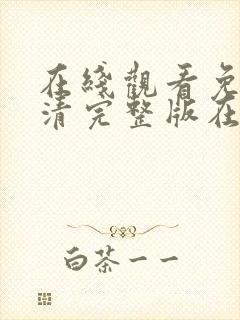 在綫觀看免
清完整版在
白茶一一